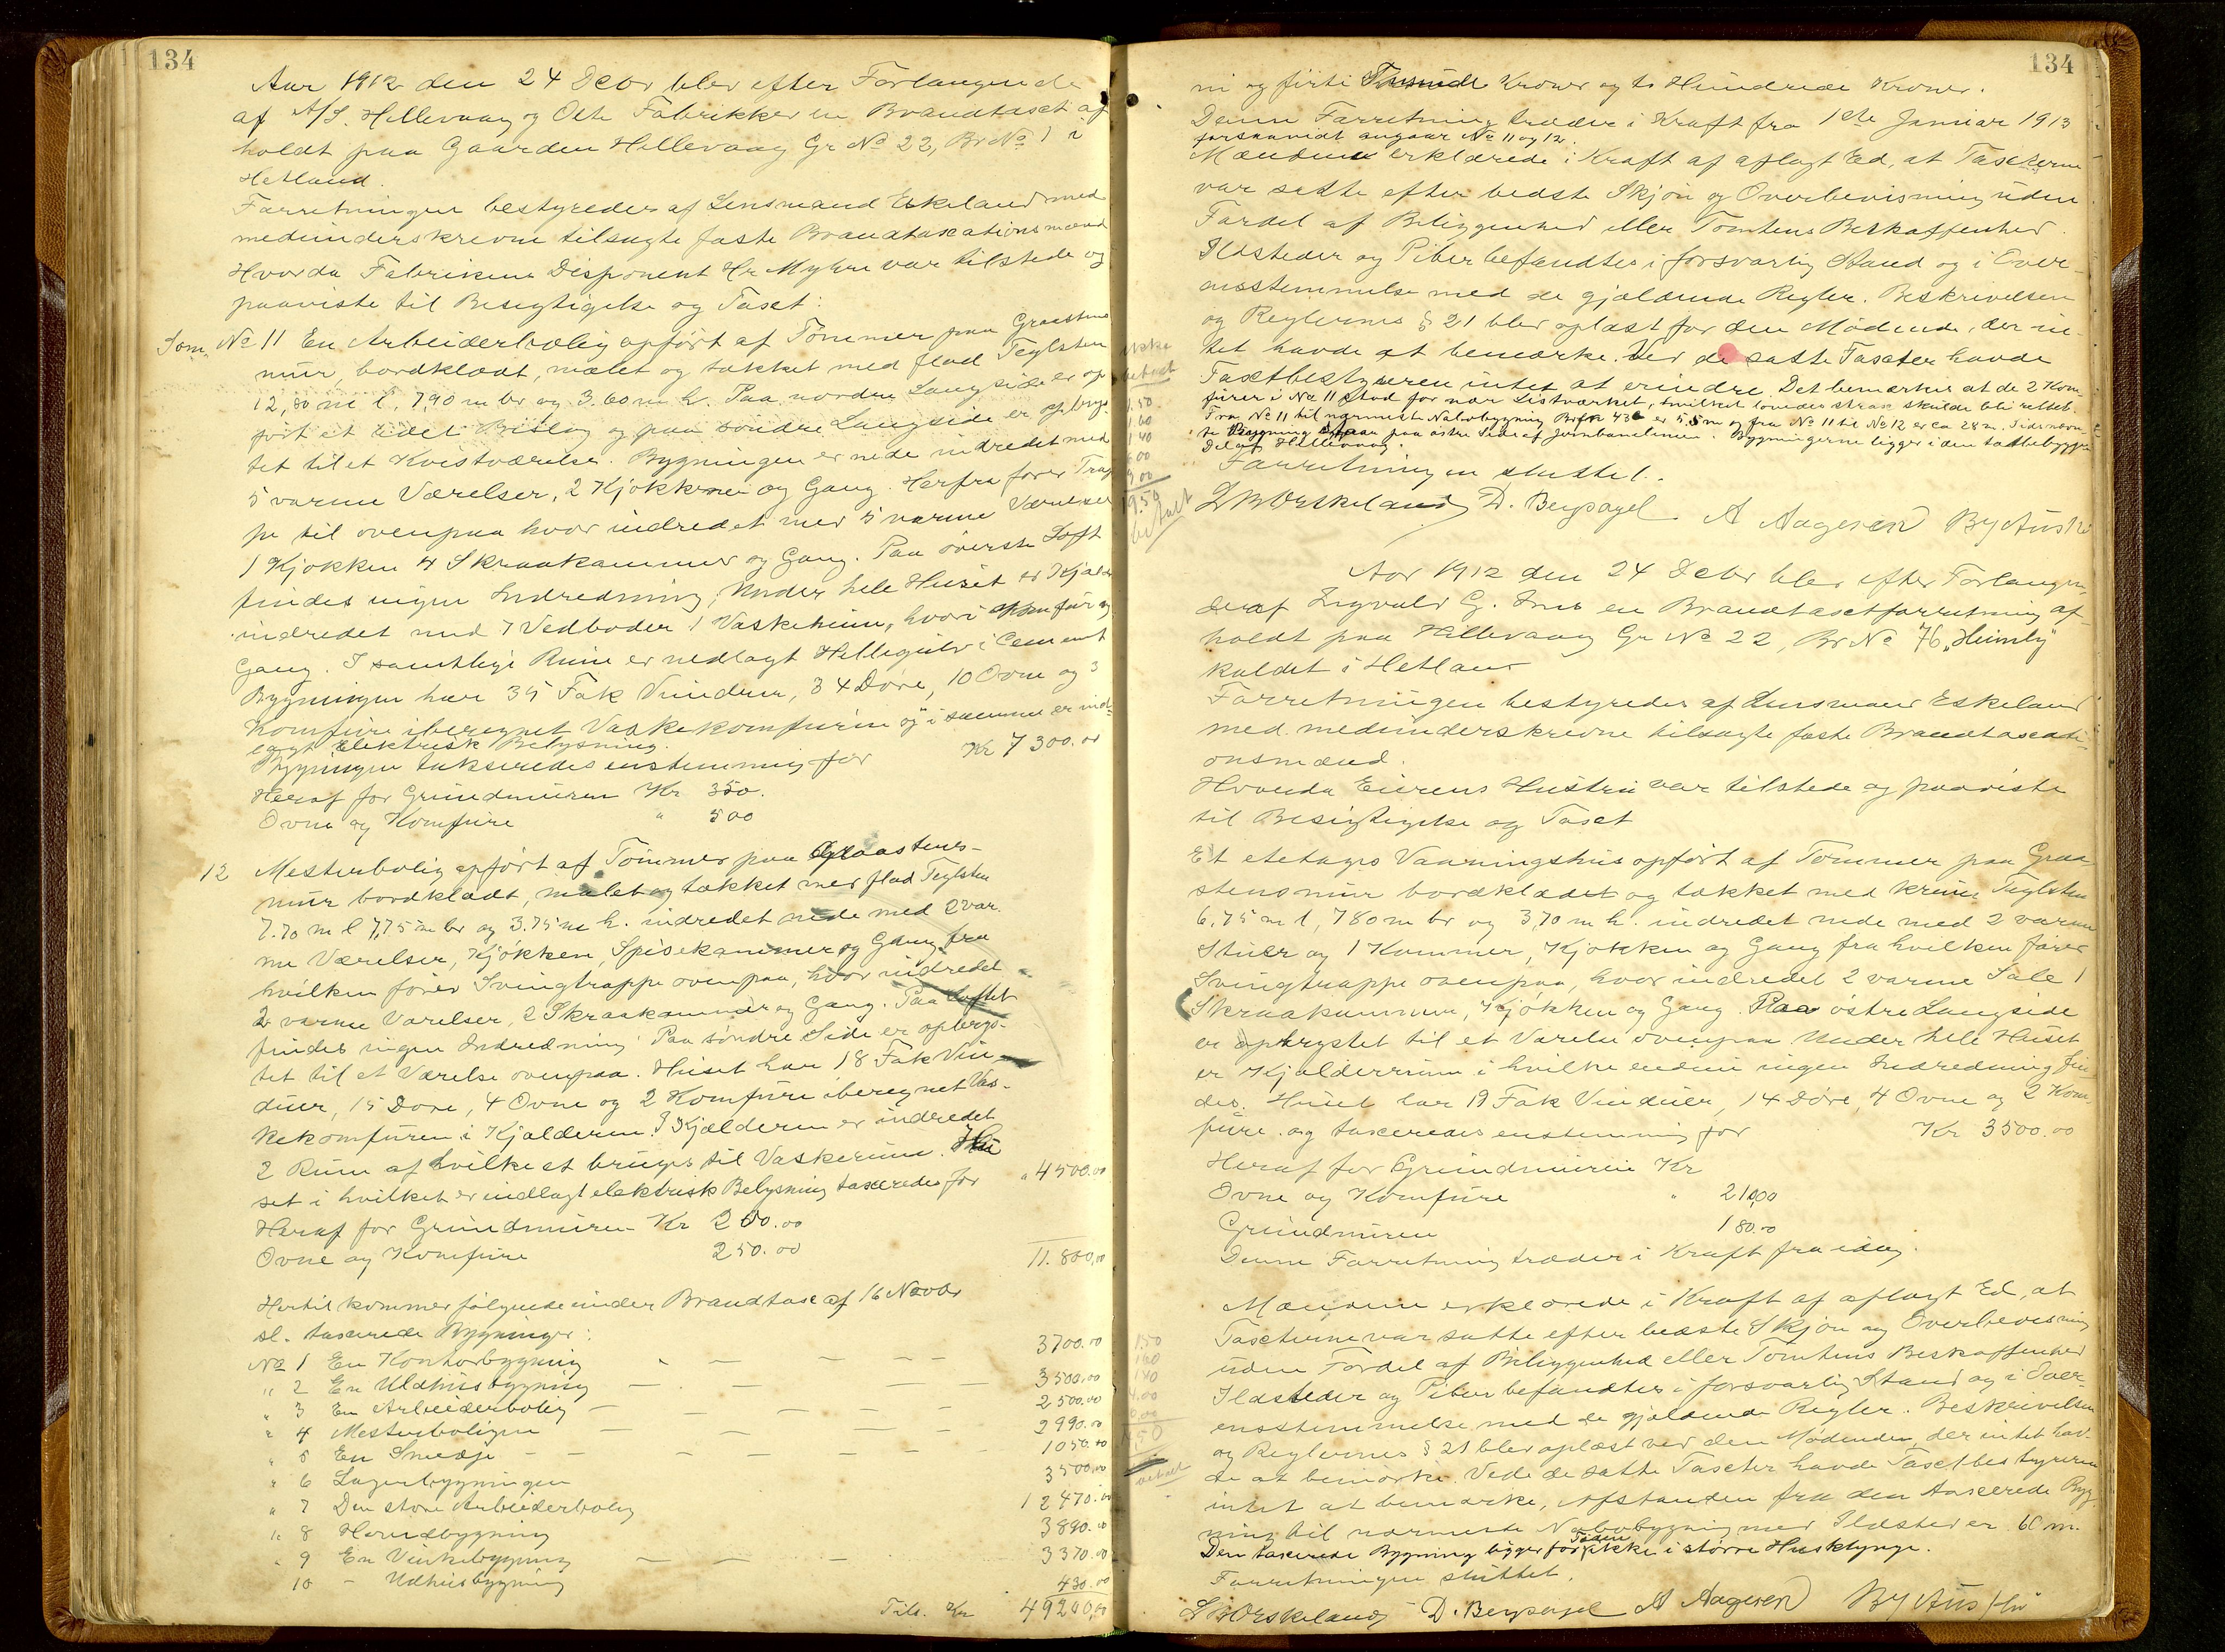 134
Aar 1912 den 24 Decbr blev efter Forlangende
af A/S. Hillevaag og Olte Fabrikker en Brandtaxt af
holdt paa Gaarden Hillevaag Gr No 22, Br No 1 i
Hetland.
Forretningen bestyredes af Lensmand Eskeland med
medunderskrevne tilsagte faste Brandtaxationsmænd
Hvorda Fabrikens Disponent Hr Myhre var tilstede og
paaviste til Besigtigelse og Taxt:
No 11 En Arbeiderbolig opført af Tømmer paa Graastens
mur, bordklædt, malet og tækket med flad Teglsten
12,80 m l, 7,90 m br og 3.60 m h. Paa nordre Langside er op
ført et lidet Bislag og paa søndre Langside er opbrys
tet til et Kvistværelse. Bygningen er nede indredet med
5 varme Værelser, 2 Kjøkkener og Gang. Herfra fører Trap
pe til ovenpaa hvor indredet med 5 varme Værelser
1 Kjøkken 4 Skraakammer og Gang. Paa øverste Loft
findes ingen Indredning, Under hele Huset er Kjælder
indredet med 7 Vedboder 1 Vaskerum, hvori Komfur og
Gang. I samtlige Rum er nedlagt Hellegulv i Cement
Bygningen har 35 Fak Vinduer, 34 Døre, 10 Ovne og 3
Komfure iberegnet Vaskekomfuren og i samme er ind
lagt elektrisk Belysning.
Bygningen takseredes enstemmig for Kr 7300.00
Heraf for Grundmuren Kr 350.
Ovne og Komfure " 500
12 Mesterbolig opført af Tømmer paa Graastens-
mur bordklædt, malet og tækket med flad Teglsten
7.70 m l 7,75 m br og 3.75 m h. indredet nede med 2 var.
me Værelser, Kjøkken, Spisekammer og Gang fra
hvilken fører Svingtrappe ovenpaa, hvor indredet
2 varme Værelser, 2 Skraakammer og Gang. Paa Loftet
findes ingen Indredning. Paa søndre Side er opbrys-
tet til et Værelse ovenpaa. Huset har 18 Fak Vin-
duer, 15 Døre, 4 Ovne og 2 Komfure iberegnet Vas-
kekomfuren i Kjælderen. I Kjælderen er indredet
2 Rum af hvilke et bruges til Vaskerum. Hu
set i hvilket er indlagt elektrisk Belysning taxeredes for " 4500.00
Heraf for Grundmuren Kr 200.00
Ovne og Komfure 250.00
11.800,00
Hertil kommer følgende under Brandtaxt af 16 Novbr
sl. taxerede Bygninger:
No 1 En Kontorbygning 3700.00
" 2 En Uldhusbygning 3500.00
" 3 En Arbeiderbolig 2500.00
" 4 Mesterboligen 2990.00
" 5 En Smedje 1050.00
" 6 Lagerbygningen 3500.00
" 7 Den store Arbeiderbolig 12470.00
" 8 3890.00
" 9 En Vinkelbygning 3370.00
10 - Udhusbygning 430.00
Tils. Kr 49200,00
134
ni og firti Tusinde Kroner og to Hundrede Kroner.
Denne Forretning træder i Kraft fra 1ste Januar 1913
forsaavidt angaar No 11 og 12.
Mændene erklærede i Kraft af aflagt Ed, at Taxterne
var satte efter bedste Skjøn og Overbevisning uden
Fordel af Beliggenhed eller Tomtens Beskaffenhed.
Ildsteder og Piber befandtes i forsvarlig Stand og i Over-
ensstemmelse med de gjældende Regler. Beskrivelsen
og Reglernes § 21 blev oplæst for den Mødende, der in-
tet havde at bemærke. Ved de satte Taxter havde
Taxtbestyreren intet at erindre. Det bemærkes at de 2 Kom
furer i No 11 stod for nær Listværket, hvilket lovedes strax skulde bli rettet.
Fra No 11 til nærmest Nabobygning Br No 436 er 5.5 m og fra No 11 til No 12 er ca 28 m. Sidstnævn
te Bygning staar paa østre Side af Jernbanelinien. Bygningerne ligger i den tætbebyggede
Del af Hillevaag.
Forretningen sluttet.
L B Eskeland D. Berpagel A Aagesen
Aar 1912 den 24 Decbr blev efter Forlangen
de af Ingvald G. en Brandtaxtforretning af-
holdt paa Hillevaag Gr No 22, Br No 76 "Heimly"
kaldet i Hetland
Forretningen bestyredes af Lensmand Eskeland
med medunderskrevne tilsagte faste Brandtaxati-
onsmænd.
Hvorda Eierens Hustru var tilstede og paaviste
til Besigtigelse og Taxt
Et etetages Vaaningshus opført af Tømmer paa Graa
stensmur bordklædt og tækket med krum Teglsten
6,75 m l, 780 m br og 3,70 m h. indredet nede med 2 varme
Stuer og 1 Kammer, Kjøkken og Gang fra hvilken fører
Svingtrappe ovenpaa, hvor indredet 2 varme Sale 1
Skraakammer, Kjøkken og Gang. Paa østre Langside
er opbrystet til et Værelse ovenpaa Under hele Huset
er Kjælderrum i hvilke endnu ingen Indredning fin
des. Huset har 19 Fak Vinduer, 14 Døre, 4 Ovne og 2 Kom-
fure. og taxeredes enstemmig for Kr 3500.00
Heraf for Grundmuren Kr
Ovne og Komfure " 210,00
Grundmuren 180.00
Denne Forretning træder i Kraft fra idag.
Mændene erklærede i Kraft af aflagt Ed, at
Taxterne var satte efter bedste Skjøn og Overbevisning
uden Fordel af Beliggenhed eller Tomtens Beskaffenhed
Ildsteder og Piber befandtes i forsvarlig Stand og i Over-
ensstemmelse med de gjældende Regler. Beskrivelsen
og Reglernes § 21 blev oplæst ved den Mødende, der intet hav-
de at bemærke. Vede de satte Taxter havde Taxtbestyreren
intet at bemærke, Afstanden fra den taxerede Byg
ning til nærmeste Nabobygning med Ildsted er 60 m.
Den taxerede Bygning ligger for Tiden ikke i større Husklynge.
Forretningen sluttet.
L B Eskeland D. Berpagel A Aagesen